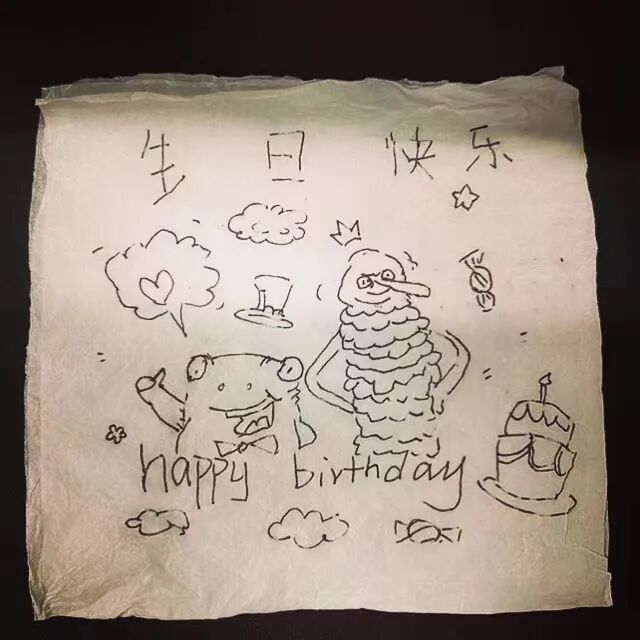 生日快乐
happy birthday